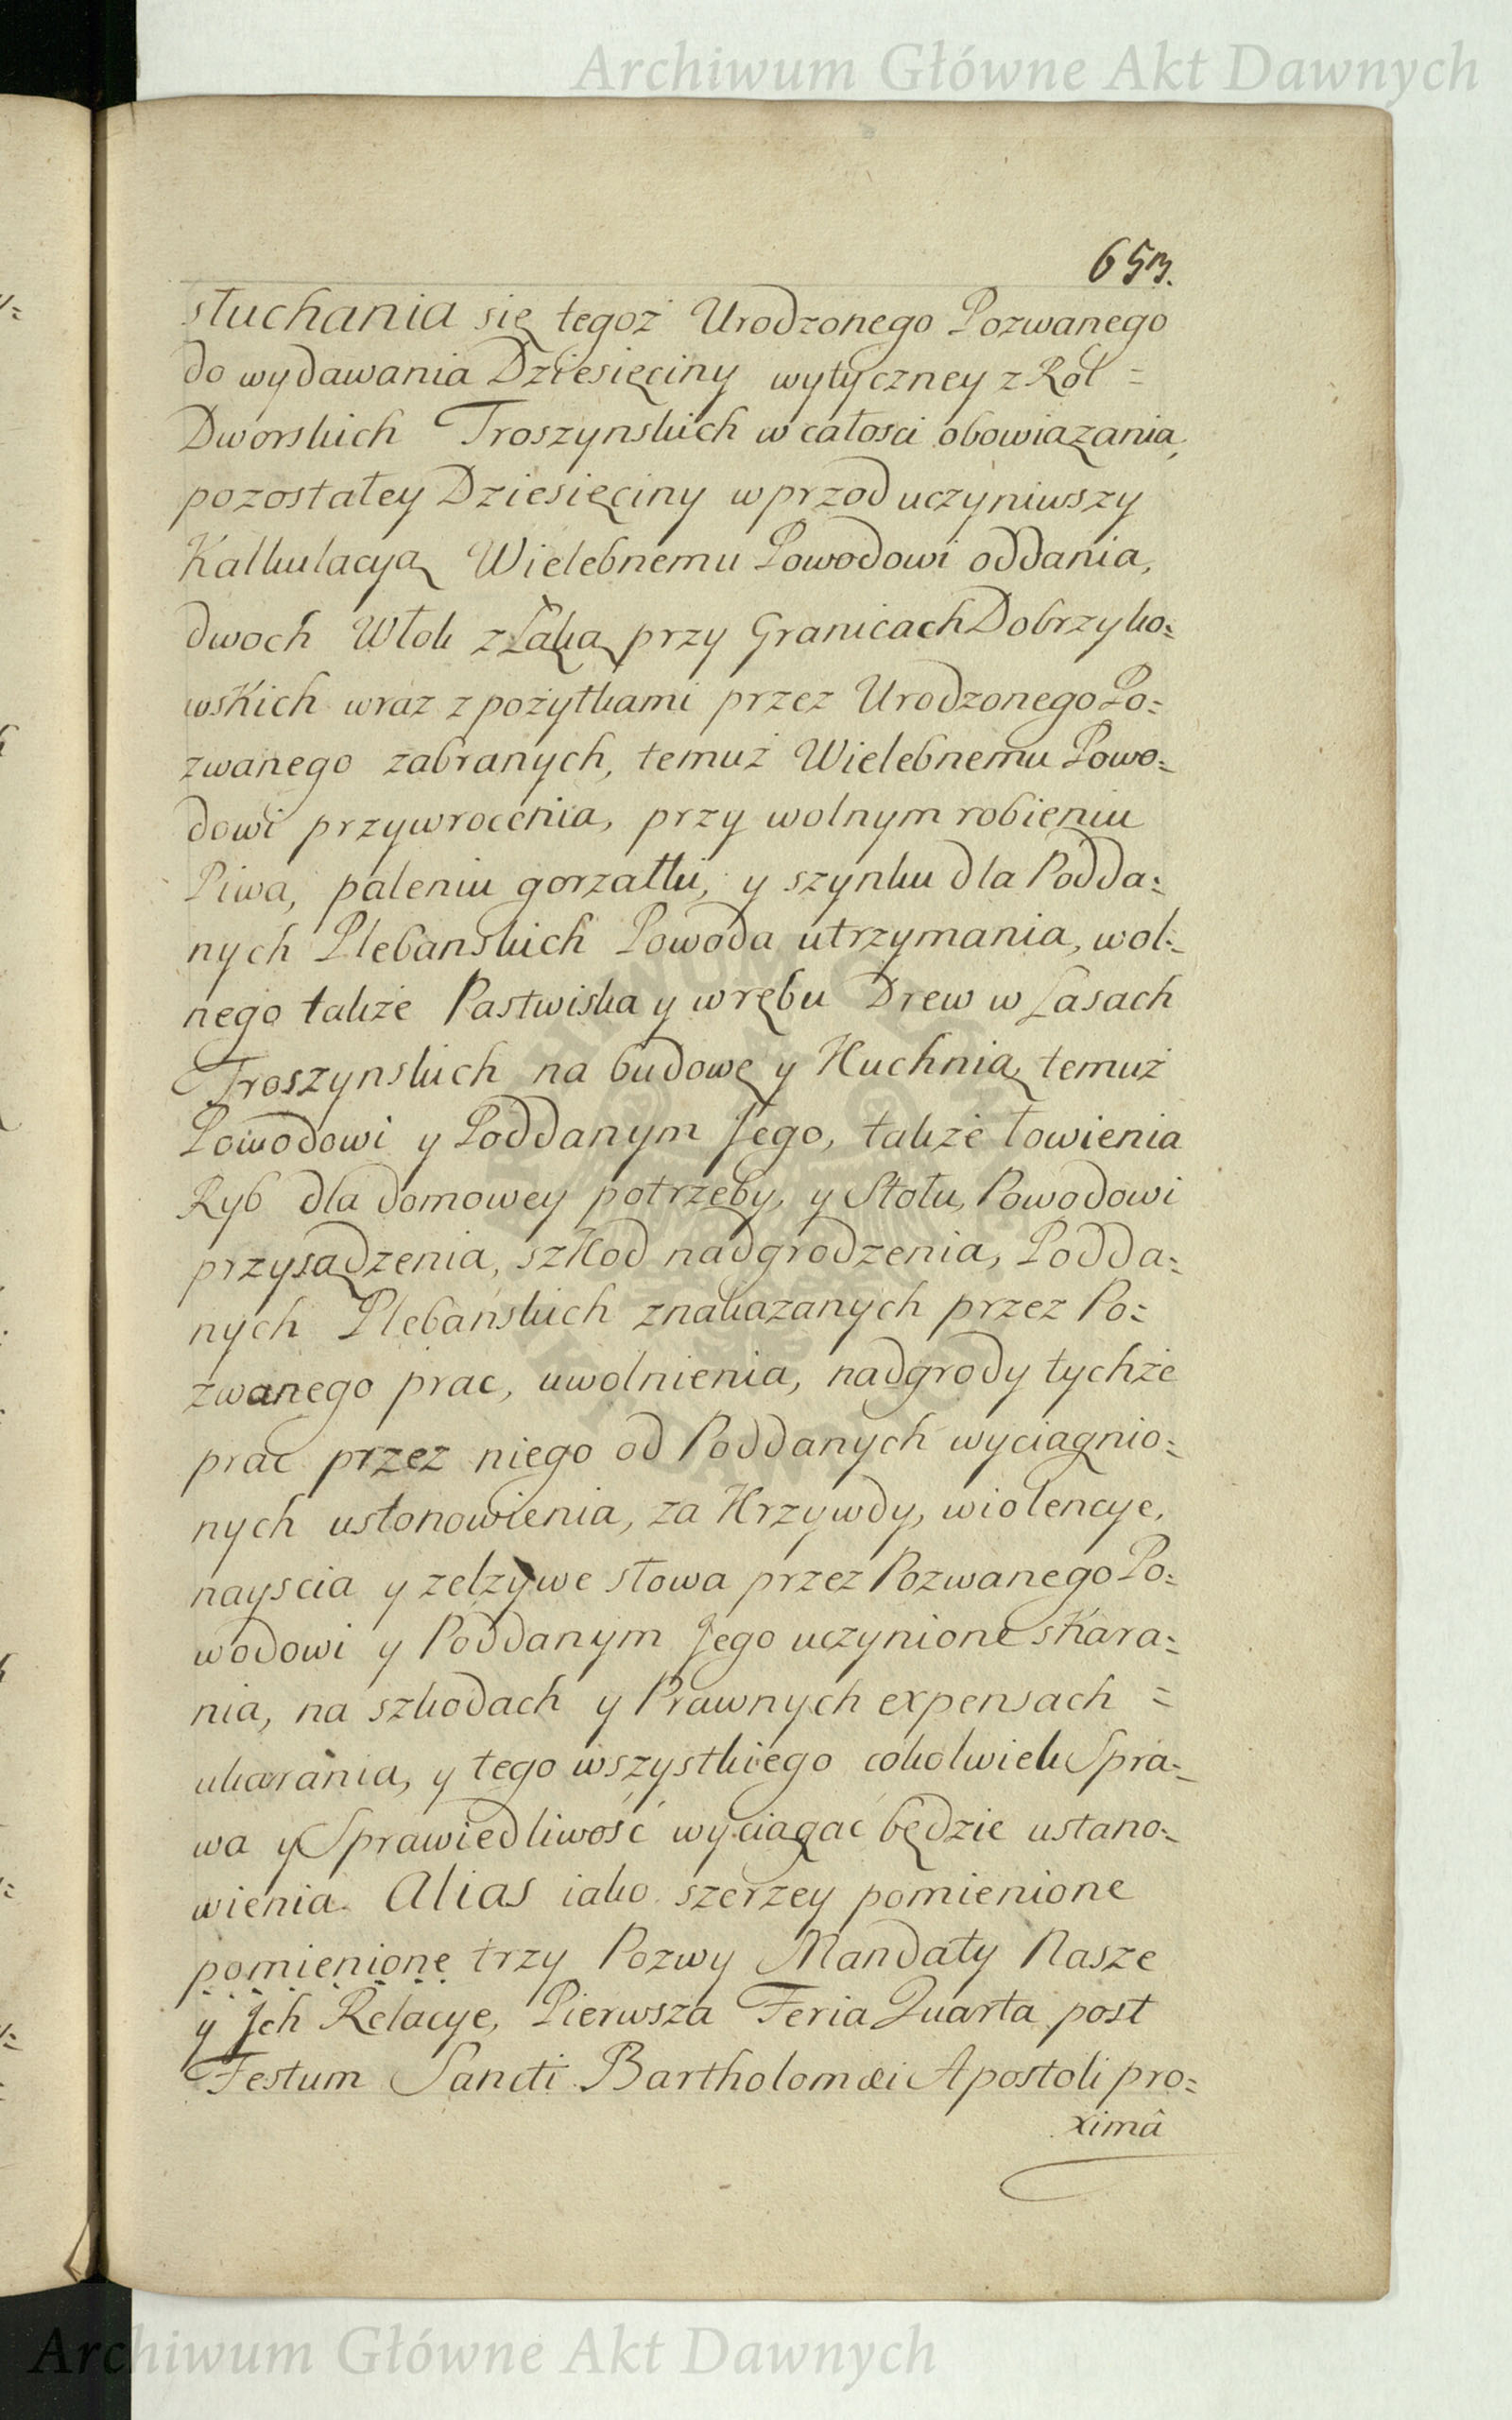 Archiwum Główne Akt Dawnych
653.
słuchania się tegoż Urodzonego Pozwanego
do wydawania Dziesięciny wytyczney z Ról =
Dworskich Troszynskich w całosci obowiązania,
pozostałey Dziesięciny wprzod uczyniwszy
Kalkulacyą Wielebnemu Powodowi oddania,
dwoch Włok z Łąką przy Granicach Dobrzyko=
wskich wraz z pożytkami przez Urodzonego Po=
zwanego zabranych, temuż Wielebnemu Powo=
dowi przywrocenia, przy wolnym robieniu
Piwa, paleniu gorzałki, y szynku dla Podda=
nych Plebanskich Powoda utrzymania, wol=
nego także Pastwiska y wrębu Drew w Lasach
Troszynskich na budowę y Kuchnią temuż
Powodowi y Poddanym Jego, także łowienia
Ryb dla domowey potrzeby, y Stołu, Powodowi
przysądzenia, szkod nadgrodzenia, Podda=
nych Plebańskich znakazanych przez Po=
zwanego prac, uwolnienia, nadgrody tychże
prac przez niego od Poddanych wyciągnio=
nych ustonowienia, za Krzywdy, wiolencye,
nayscia y zelzywe słowa przez Pozwanego Po=
wodowi y Poddanym Jego uczynione skara=
nia, na szkodach y Prawnych expensach =
ukarania, y tego wszystkiego cokolwiek Spra=
wa y Sprawiedliwość wyciągać będzie ustano=
wienia. Alias iako szerzey pomienione
pomienione trzy Pozwy Mandaty Nasze
y Jch Relacye, Pierwsza Feria Quarta post
Festum Sancti Bartholomæi Apostoli pro=
ximâ
Archiwum Główne Akt Dawnych